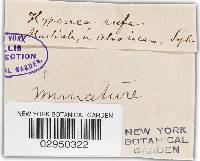 Hypocrea rufa
YORK
LLIS
ECTION
AL GARDEN
immature
NEW YORK BOTANICAL GARDEN
02950322
NEW YORK
BOTANICAL
GARDEN